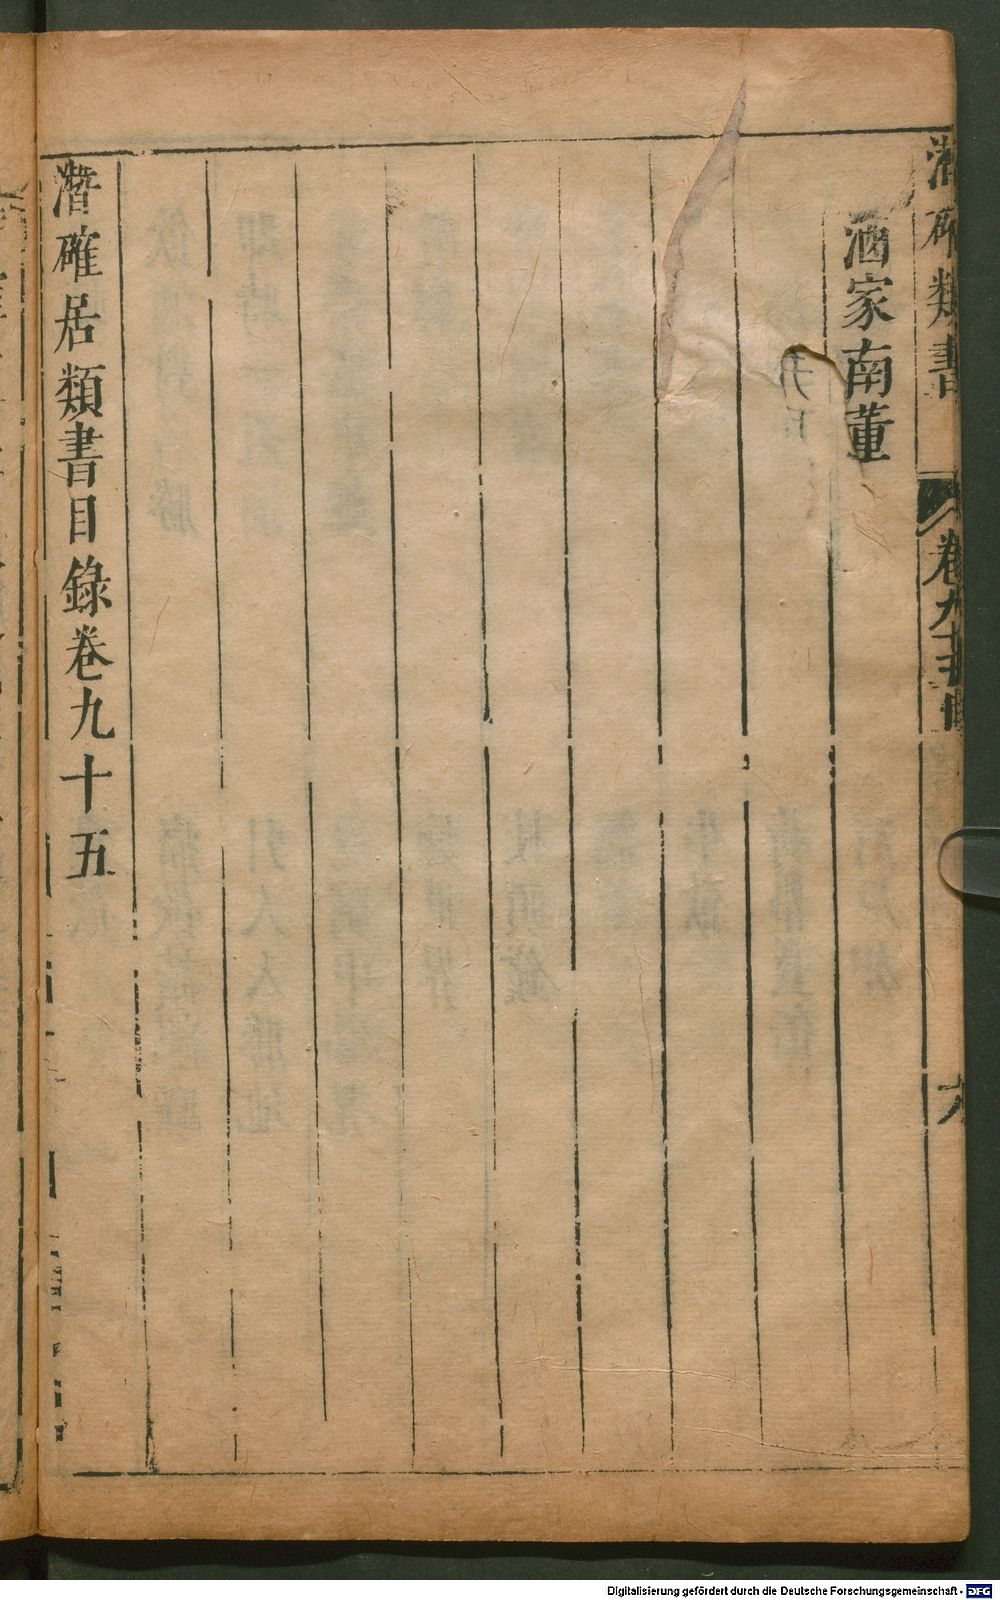 潛確類書
卷九十五
六
酒家南董
潛確居類書目錄卷九十五
Digitalisierung gefördert durch die Deutsche Forschungsgemeinschaft - DFG